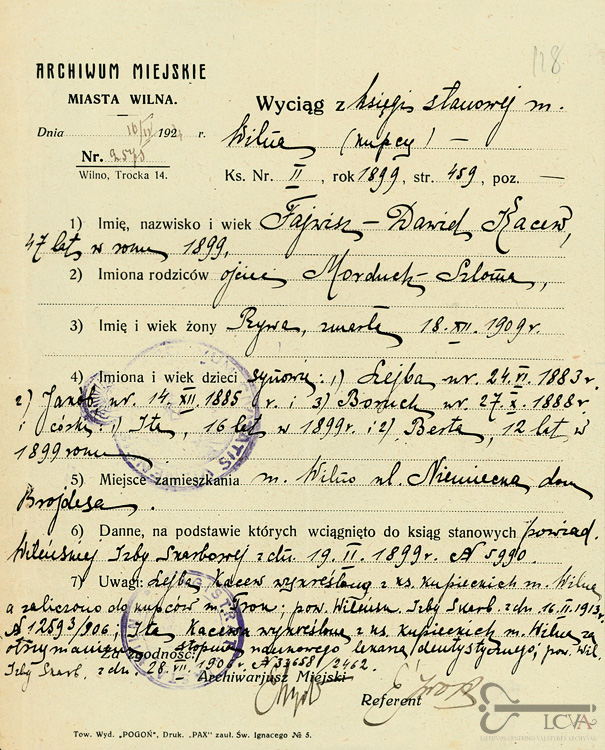 118
ARCHIWUM MIEJSKIE
MIASTA WILNA.
Dnia 16/II 192 r.
Nr. 2573
Wilno, Trocka 14.
Wyciąg z księgi stanowej m.
Wilna (kupcy) —
Ks. Nr. II, rok 1899, str. 459, poz. —
1) Imię, nazwisko i wiek Fajwisz-Dawid Kacew,
47 lat w roku 1899.
2) Imiona rodziców ojciec Morduch-Szloma,
3) Imię i wiek żony Rywa, zmarła 18.XII.1909 r.
4) Imiona i wiek dzieci synowie: 1) Lejba ur. 24.VI.1883 r.
2) Jankiel ur. 14.XII.1885 r. i 3) Boruch ur. 27.X.1888 r.
i córki: 1) Ita, 16 lat w 1899 r. i 2) Berta, 12 lat w
1899 roku
5) Miejsce zamieszkania m. Wilno ul. Niemiecka dom
Brojdesa.
6) Danne, na podstawie których wciągnięto do ksiąg stanowych powiad.
Wileńskiej Izby Skarbowej z dn. 19.II.1899 r. N 5990.
7) Uwagi: Lejba Kacew wykreślony z ks. kupieckich m. Wilna
a zaliczono do kupców m. Trok; pow. Wileńsk. Izby Skarb. z dn. 16.II.1913 r.
N 12593/906; Ita Kacewa wykreślona z ks. kupieckich m. Wilna za
otrzymaniem stopnia naukowego lekarza dentystycznego; pow. Wil.
Izby Skarb. z dn. 28.VII.1906 r. N 33658/2462.
Za zgodność:
Archiwarjusz Miejski
Referent
Tow. Wyd. „POGOŃ", Druk. „PAX" zauł. Św. Ignacego № 5.
LCVA